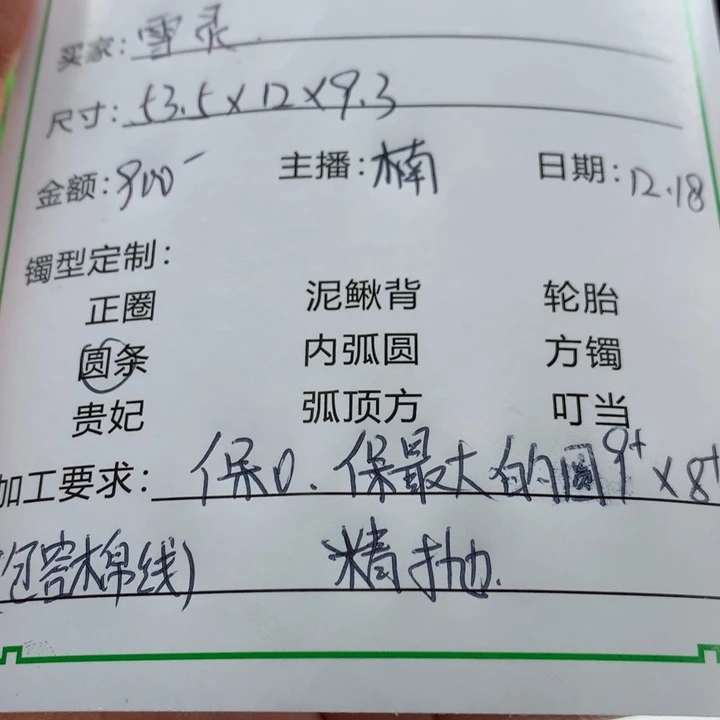 买家：雪灵
尺寸：53.5×12×9.3
金额：900- 主播：楠 日期：12.18
镯型定制：
正圈 泥鳅背 轮胎
圆条 内弧圆 方镯
贵妃 弧顶方 叮当
加工要求：保0.保最大的圆9+×8+
(包容棉线) 精抛.